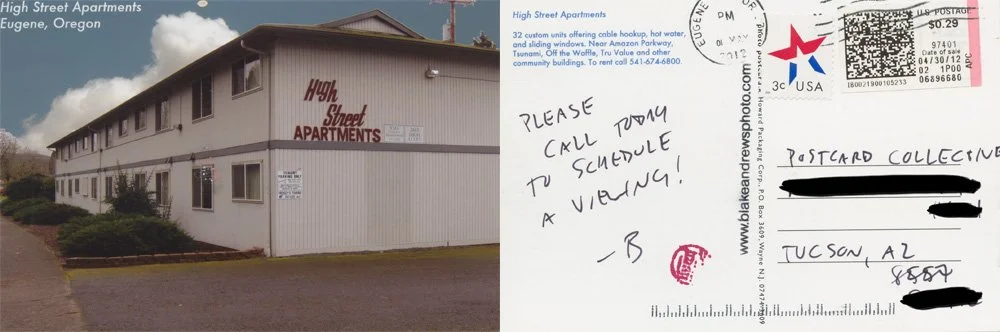 High Street Apartments
Eugene, Oregon
High
Street
APARTMENTS
PARKING ONLY
High Street Apartments
32 custom units offering cable hookup, hot water,
and sliding windows. Near Amazon Parkway,
Tsunami, Off the Waffle, Tru Value and other
community buildings. To rent call 541-674-6800.
PLEASE
CALL TODAY
TO SCHEDULE
A VIEWING!
—B
www.blakeandrewsphoto.com
Photo postcards, Howard Packaging Corp., P.O. Box 3609, Wayne N.J. 07474-3609
EUGENE OR
PM
2012
3c USA
U.S. POSTAGE
$0.29
97401
Date of sale
04/30/12
02 1P00
06896680
APC
POSTCARD COLLECTIVE
TUCSON, AZ